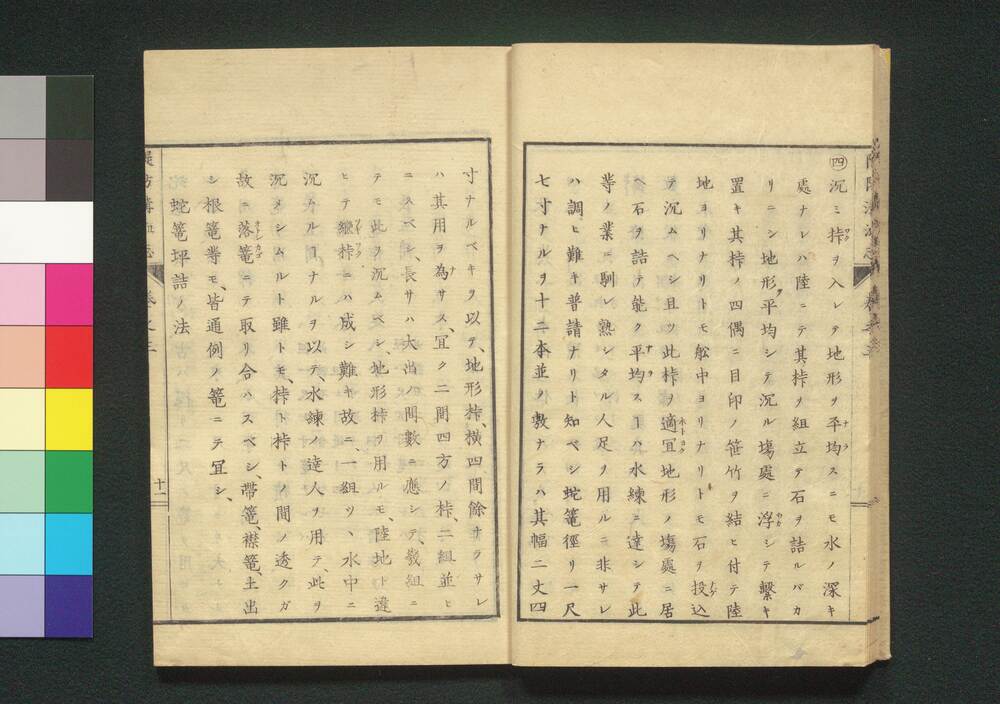 ㊃沉ミ桛ヲ入レテ地形ヲ平均スニモ水ノ深キ
處ナレハ陸ニテ其桛ヲ組立テ石ヲ詰ルバカ
リニシ地形平均シテ沉ル塲處ニ浮シテ繫キ
置キ其桛ノ四偶ニ目印ノ笹竹ヲ結ヒ付テ陸
地ヨリナリトモ舩中ヨリナリトモ石ヲ投込
テ沉ムヘシ且ツ此桛ヲ適冝地形ノ塲處ニ居
ヘ石ヲ詰テ能ク平均スヿハ水練ニ達シテ此
等ノ業ニ馴レ熟シタル人足ヲ用ルニ非サレ
ハ調ヒ難キ普請ナリト知ベシ蛇篭徑リ一尺
七寸ナルヲ十二本並ノ敷ナラハ其幅二丈四
寸ナルベキヲ以テ、地形桛、横四間餘ナラサレ
ハ其用ヲ為サス、冝ク二間四方ノ桛、二組並ヒ
ニスベシ、長サハ大出ノ間數ニ應シテ、幾組ニ
テモ此ヲ沉ムベシ、地形桛ヲ用ルモ、陸地ト違
ヒテ繼桛ニハ成シ難キ故ニ、一組ツヽ水中ニ
沉ムルヿナルヲ以テ、水練ノ達人ヲ用テ、此ヲ
沉メシムルト雖トモ、桛ト桛トノ間ノ透クガ
故ニ落篭ニテ取リ合ハスベシ、帶篭、襟篭、土出
シ根篭等モ、皆通例ノ篭ニテ冝シ、
蛇篭坪詰ノ法
十一